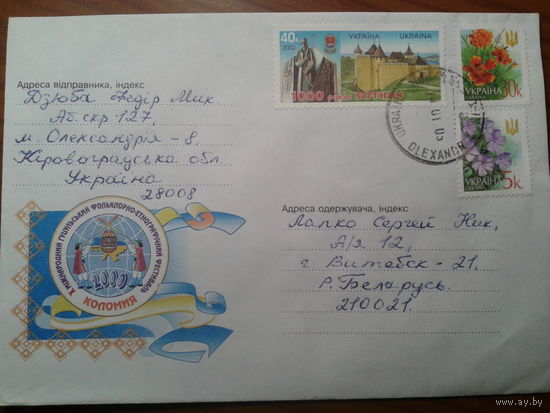 Адреса відправника, індекс
Дзюба Федір Мик.
Аб. скр 127.
м. Олександрія - 8.
Кіровоградська обл.
Україна
28008
X МІЖНАРОДНИЙ ГУЦУЛЬСЬКИЙ ФОЛЬКЛОРНО-ЕТНОГРАФІЧНИЙ ФЕСТИВАЛЬ
2000
КОЛОМИЯ
40к.
2002
УКРАЇНА UKRAINA
1000 років ХОТИНУ
УКРАЇНА
30к
УКРАЇНА
5к
UKRAINE
OLEXANDR
Адреса одержувача, індекс
Лапко Сергей Ник.
А/я 12,
г Витебск - 21.
Р. Беларусь.
210021.
www.ay.by